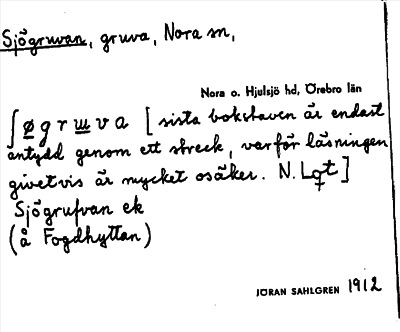 Sjögruvan, gruva, Nora sn,
Nora o. Hjulsjö hd, Örebro län
ʃøgrɯva [sista bokstaven är endast
antydd genom ett streck, varför läsningen
givetvis är mycket osäker. N. Lgt]
Sjögrufvan ek
(å Fogdhyttan)
JÖRAN SAHLGREN 1912